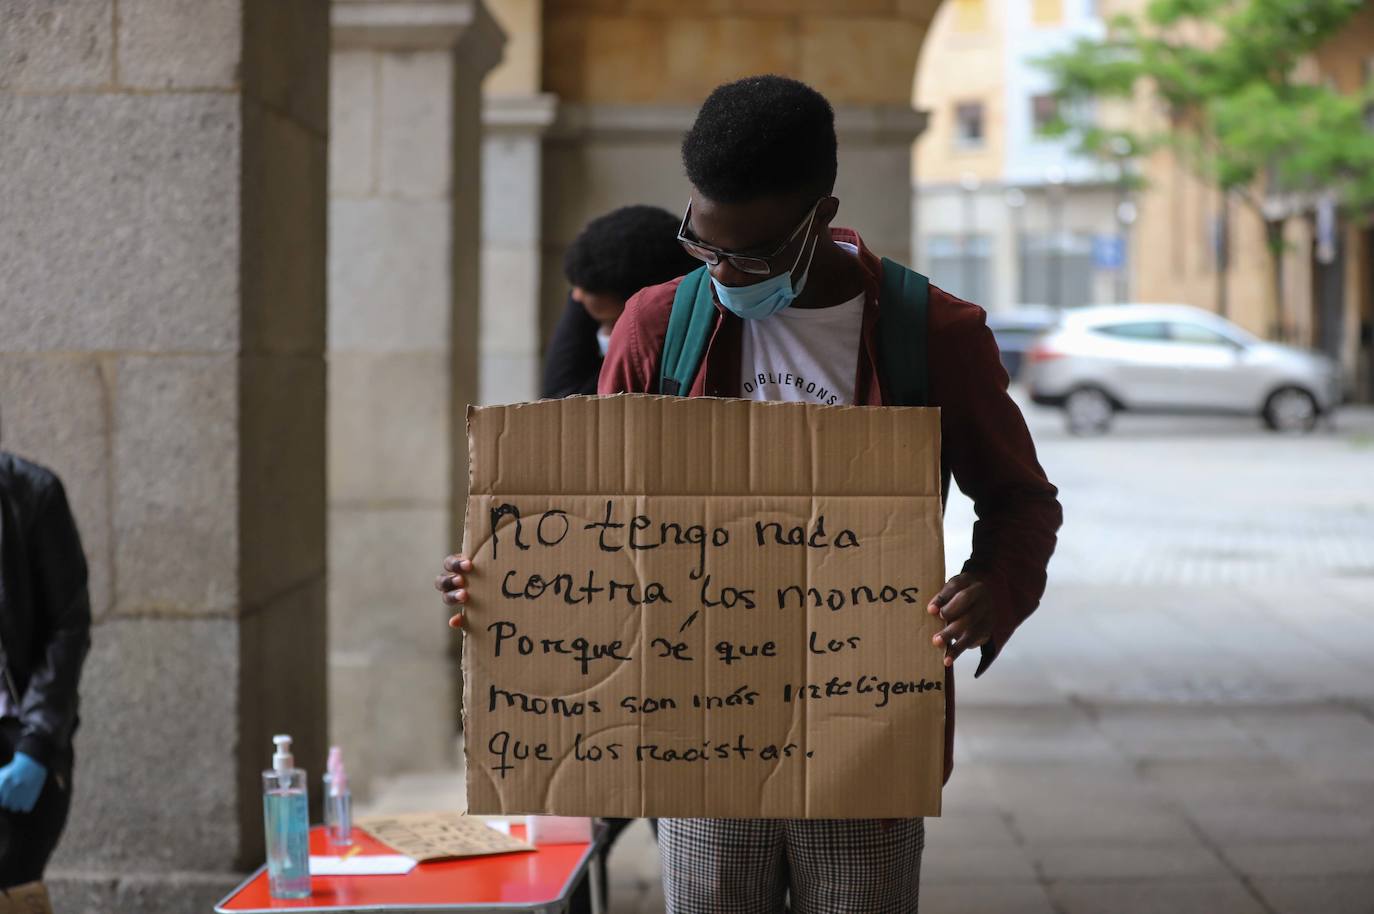 OBLIERONS
no tengo nada
contra los monos
Porque sé que los
monos son más inteligentes
que los racistas.